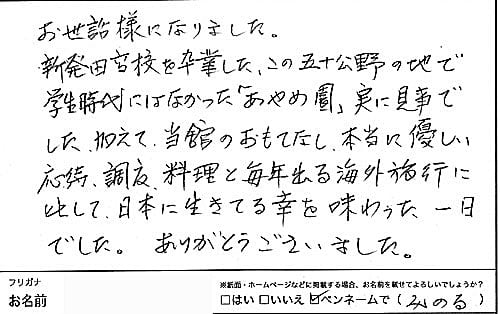 お世話様になりました。
新発田高校を卒業した、この五十公野の地で
学生時代にはなかった「あやめ園」実に見事で
した、加えて、当館のおもてなし、本当に優しい
応待、調度、料理と毎年出る海外旅行に
比して、日本に生きてる幸を味わった一日
でした。 ありがとうございました。
フリガナ
お名前
※紙面・ホームページなどに掲載する場合、お名前を載せてよろしいでしょうか?
□はい □いいえ ☑ペンネームで ( みのる )